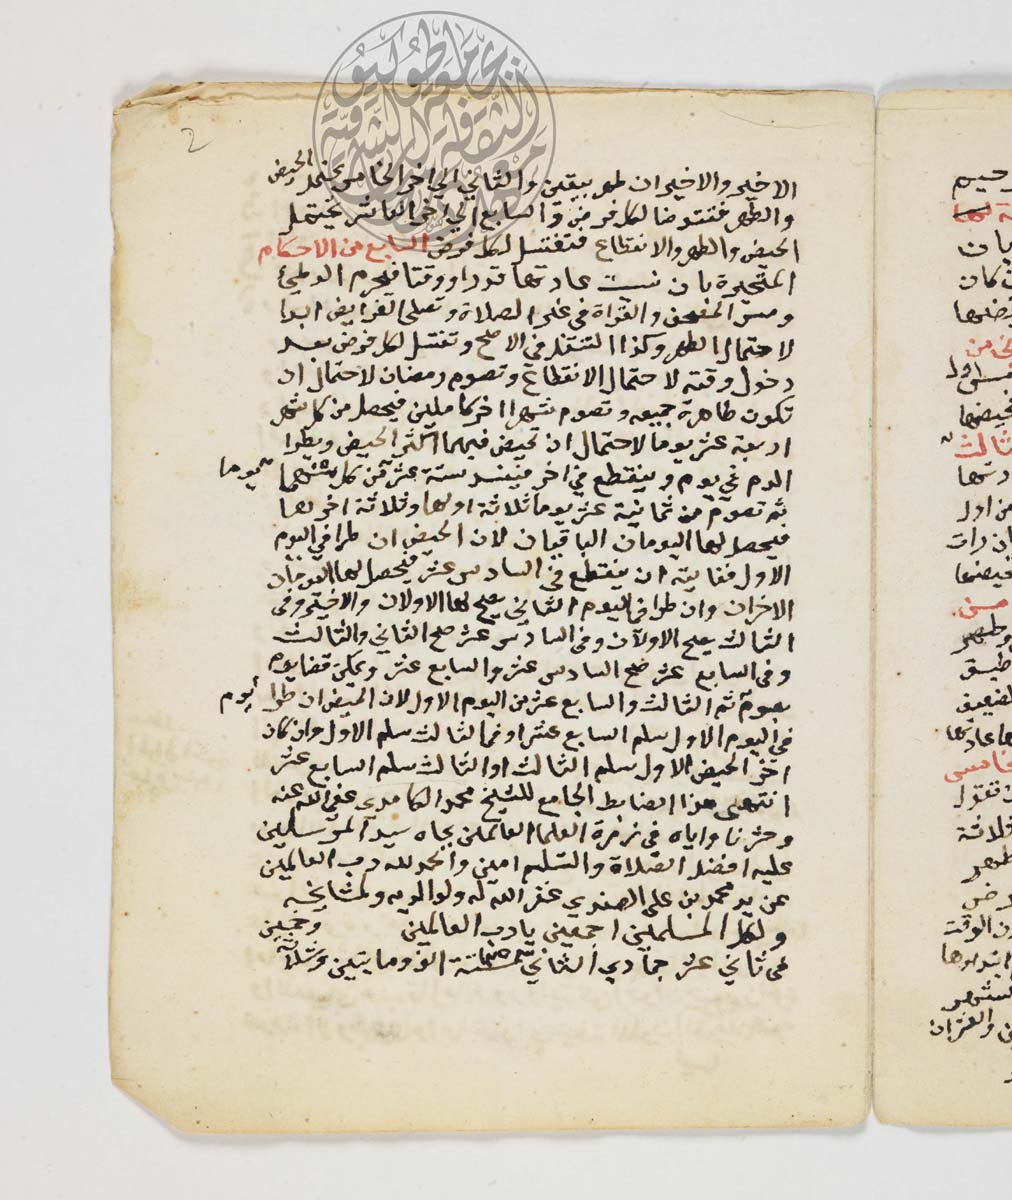 2
الاخير والاخيران طهر بيقين والثاني الي اخر الخامس يحتمل الحيض
والطهر فتتوضا لكل فرض والسابع الي اخر العاشر يحتمل
الحيض والطهر والانقطاع فتغتسل لكل فرض السابع من الاحكام
المتحيرة بان نسيت عادتها قدرا ووقتا فيحرم الوطيء
ومس المصحف والقراة في غير الصلاة وتصلي الفرايض ابدا
لاحتمال الطهر وكذا التنفل في الاصح وتغتسل لكل فرض بعد
دخول وقته لاحتمال الانقطاع وتصوم رمضان لاحتمال ان
تكون طاهرة جميعه وتصوم شهرا اخر كاملين فيحصل من كل شهر
اربعة عشر يوما لاحتمال ان تحيض فيهما اكثر الحيض ويطرا
الدم في يوم وينقطع في اخر فيفسد ستة عشر من كل شهر يوما
ثم تصوم من ثمانية عشر يوما ثلاثة اولها وثلاثة اخرها
فيحصل لها اليومان الباقيان لان الحيض ان طرا في اليوم
الاول فغايته ان ينقطع في السادس عشر فيحصل لها اليومان
الاخران وان طرا في اليوم الثاني يصح لها الاولان والاخير وفي
الثالث يصح الاولان وفي السادس عشر صح الثاني والثالث
وفي السابع عشر صح السادس عشر والسابع عشر ويمكن قضا يوم
بصوم يوم ثم الثالث والسابع عشر من اليوم الاول لان الحيض ان طرا
في اليوم الاول سلم السابع عشر او في الثالث سلم الاول وان كان
اخر الحيض الاول سلم الثالث او الثالث سلم السابع عشر
انتهي هذا الضابط الجامع للشيخ محمد عفي الله عنه
وحشرنا واياه في زمرة العلما العاملين بجاه سيد المرسلين
عليه افضل الصلاة والتسليم امين والحمد لله رب العالمين
عن يد محمد بن علي غفر الله له ولوالديه ولمشايخه
ولكل المسلمين اجمعين يا رب العالمين
في ثاني عشر جمادي الثاني سنة الف ومايتين